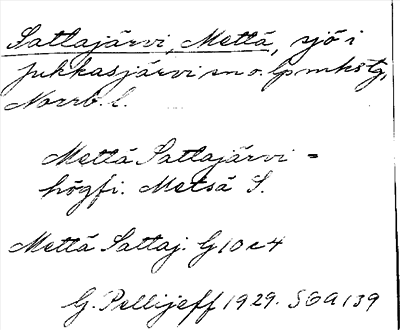 Sattajärvi, Mettä, sjö i
Jukkasjärvi sn o. lpmkstg,
Norrb. l.
Mettä Sattajärvi =
högfi. Metsä S.
Mettä Sattaj. G 10 e 4
G. Pellijeff 1929. SOA 139